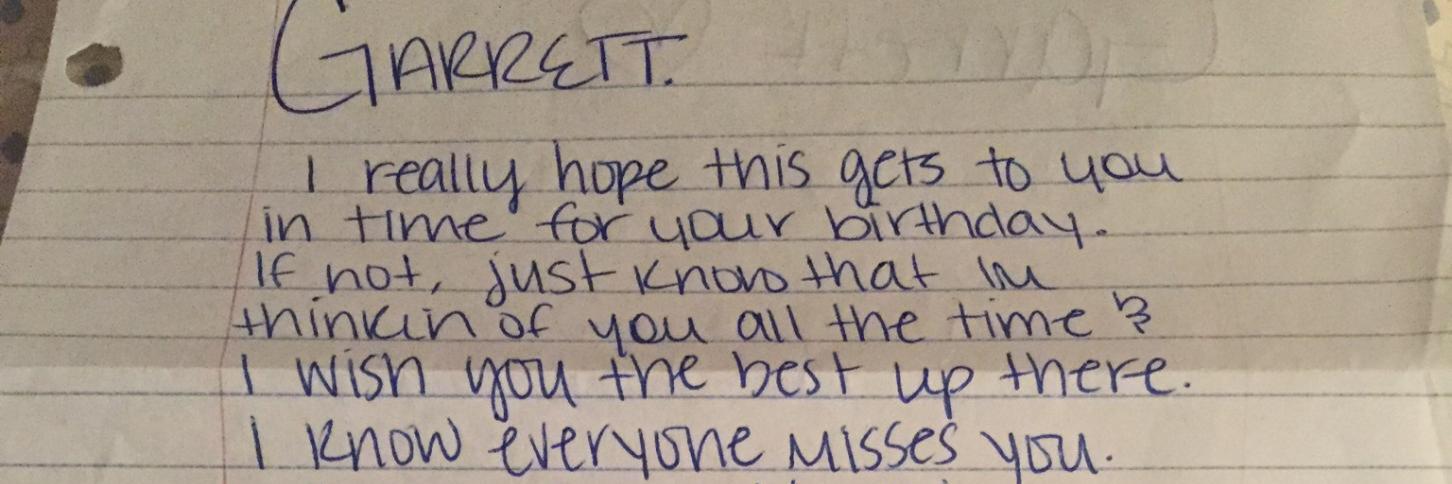 GARRETT.
I really hope this gets to you
in time for your birthday.
If not, just know that Im
thinkin of you all the time &
I wish you the best up there.
I know everyone misses you.